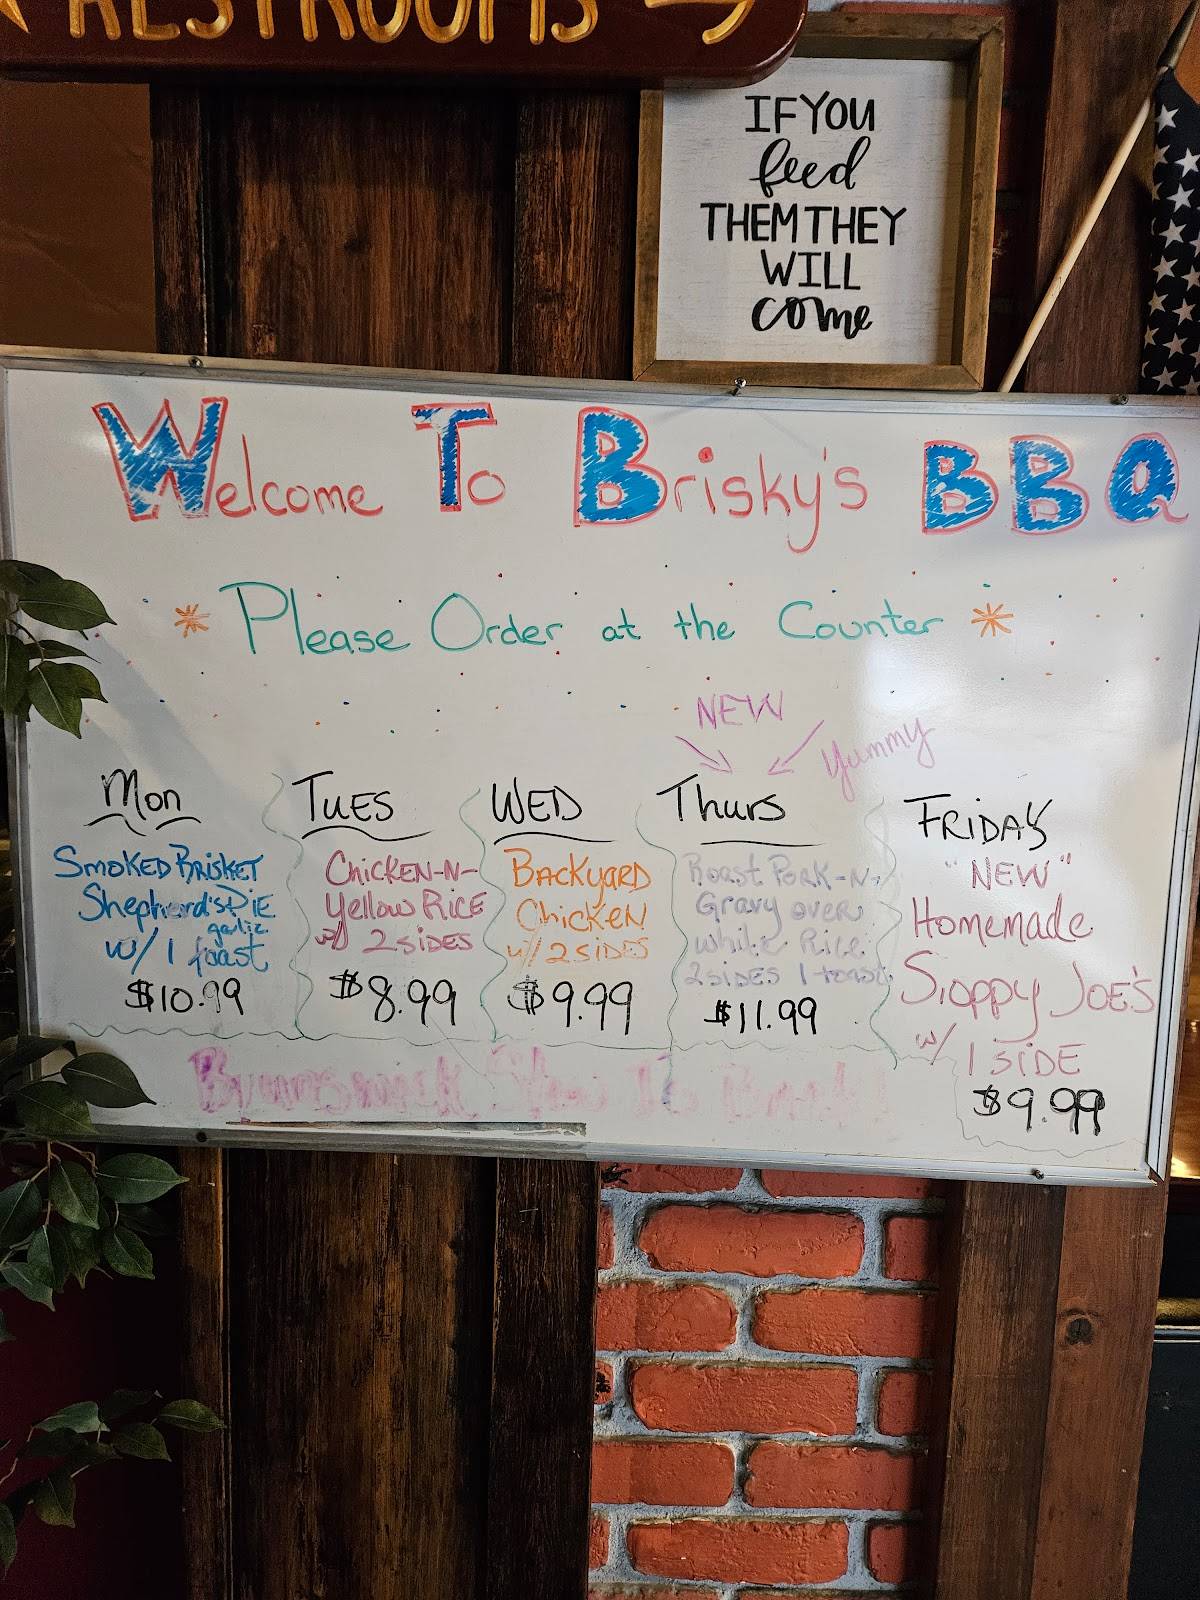 RESTROOMS
IF YOU
feed
THEM THEY
WILL
come
Welcome To Brisky's BBQ
* Please Order at the Counter *
NEW
Yummy
Mon
Smoked Brisket
Shepherd's Pie
garlic
w/ 1 toast
$10.99
Tues
Chicken-N-
Yellow Rice
w/ 2 sides
$8.99
Wed
Backyard
Chicken
w/ 2 sides
$9.99
Thurs
Roast Pork-N-
Gravy over
white Rice
2 sides 1 toast
$11.99
Friday
"NEW"
Homemade
Sloppy Joe's
w/ 1 side
$9.99
Brunswick Stew Is Back!